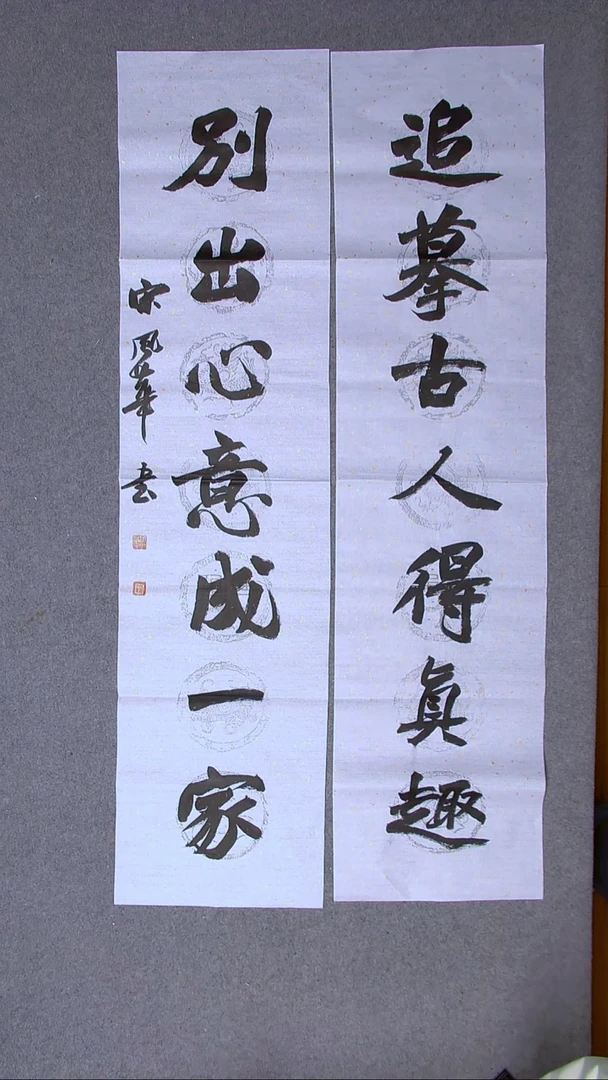 追摹古人得真趣
别出心意成一家
宋风华书